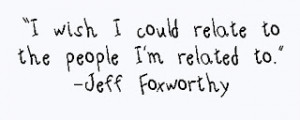 "I wish I could relate to
the people I'm related to."
-Jeff Foxworthy